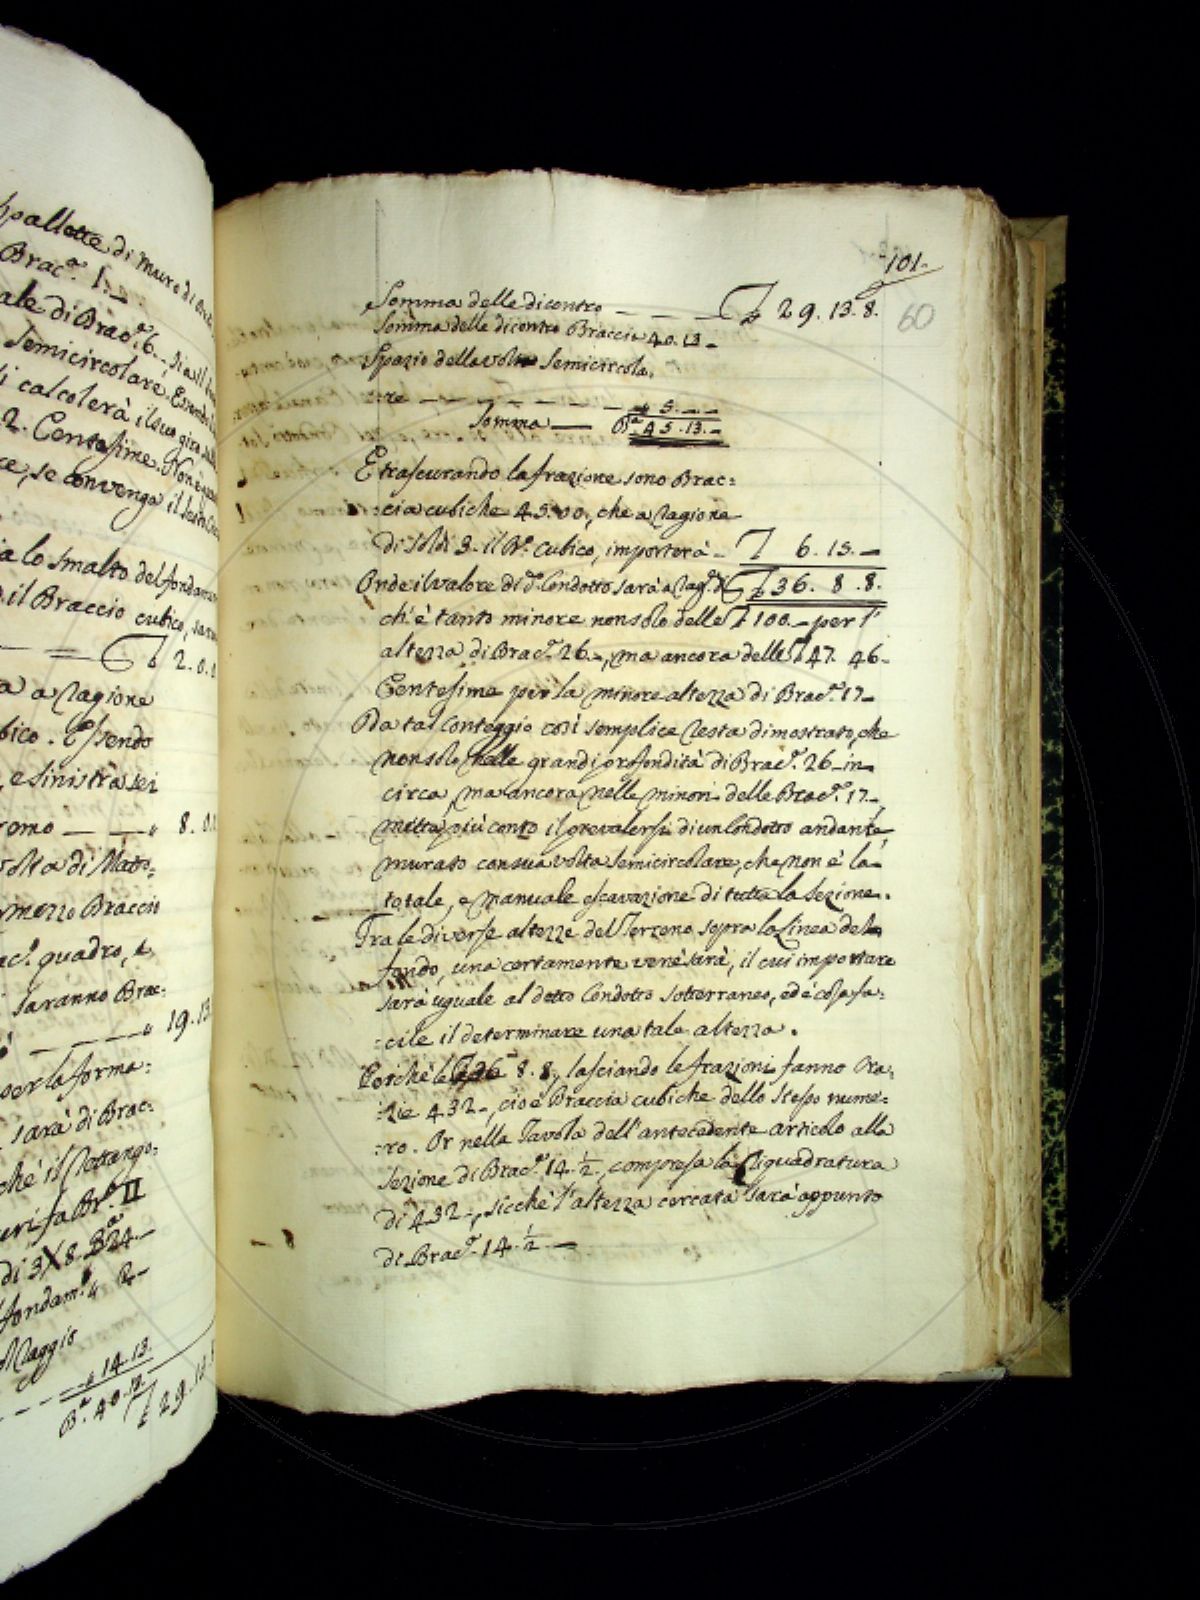 spallette di Muro di
Brac.ª 1.
ale di Brac.ª 6.
Semicircolare. Essendo
si calcolerà il suo giro
2. Centesime. Non è
ce, se convenga il
ia lo smalto del fondam
il Braccio cubico, sarà
₤ 2.0.0
a a ragione
bico. Essendo
, e sinistra sei
romo — — " 8. 0.
volta di Matto:
mezzo Braccio
ac.º quadro, e
saranno Brac:
" 19. 13.
per la forma:
sarà di Brac:
chè il Rettango:
II
di 3X8. B.ª 24. —
fondam.º " 2 —
" 14. 13.
B.ª 40. 13.
₤ 29. 13.
101.
60
Somma delle dicontro — — — ₤ 29. 13. 8.
Somma delle dicontro Braccia 40. 13. —
Spazio della volta Semicircola:
:re — — — — — — " 5. — —
Somma — B.ª 45. 13. —
E trascurando la frazione sono Brac:
:cia cubiche 45. 00, che a ragione
di soldi 3. il B.º cubico, importerà — ₤ 6. 15. —
Onde il valore di d.º Condotto sarà a rag.e di ₤ 36. 8. 8.
ch'è tanto minore non solo delle ₤ 100. — per l'
altezza di Brac.ª 26. —, ma ancora delle ₤ 47. 46 —
Centesime per la minore altezza di Brac.ª 17 —
Da tal Conteggio così semplice resta dimostrato, che
non solo nelle grandi profondità di Brac.ª 26 — in
circa, ma ancora nelle minori delle Brac.ª 17 —,
metta più conto il prevalersi di un Condotto andante
murato con sua volta semicircolare, che non è la
totale, e manuale escavazione di tutta la Sezione.
Tra le diverse altezze del Terreno sopra la linea del
fondo, una certamente ve n'è sarà, il cui importare
sarà uguale al detto Condotto sotterraneo, ed è cosa fa:
:cile il determinare una tale altezza.
Perchè le ₤ 36 8. 8., lasciando le frazioni fanno Cra:
:zie 432 —, cioè Braccia cubiche dello stesso nume:
:ro. Or nella Tavola dell'antecedente articolo alla
Sezione di Brac.ª 14. ½, compresa la Riquadratura
di 432 —, sicchè l'altezza cercata sarà appunto
di Brac.ª 14. ½ —